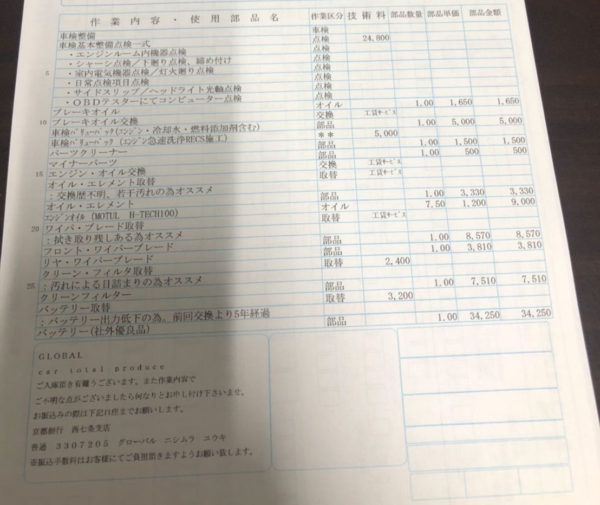 作業内容・使用部品名 作業区分 技術料 部品数量 部品単価 部品金額
車検整備 車検
車検基本整備点検一式 点検 24,800
・エンジンルーム内機器点検 点検
・シャーシ点検/下廻り点検、締め付け 点検
5 ・室内電気機器点検/灯火廻り点検 点検
・日常点検項目点検 点検
・サイドスリップ/ヘッドライト光軸点検 点検
・OBDテスターにてコンピューター点検 点検
ブレーキオイル オイル 1.00 1,650 1,650
10 ブレーキオイル交換 交換 工賃サービス
車検バリューパック(エンジン・冷却水・燃料添加剤含む) 部品 1.00 5,000 5,000
車検バリューパック(エンジン急速洗浄RECS施工) ** 5,000
パーツクリーナー 部品 1.00 1,500 1,500
マイナーパーツ 部品 1.00 500 500
15 エンジン・オイル交換 交換 工賃サービス
オイル・エレメント取替 取替 工賃サービス
:交換歴不明、若干汚れの為オススメ
オイル・エレメント 部品 1.00 3,330 3,330
エンジンオイル(MOTUL H-TECH100) オイル 7.50 1,200 9,000
20 ワイパ・ブレード取替 取替 工賃サービス
:拭き取り残しある為オススメ
フロント・ワイパーブレード 部品 1.00 8,570 8,570
リヤ・ワイパーブレード 部品 1.00 3,810 3,810
クリーン・フィルタ取替 取替 2,400
25 :汚れによる目詰まりの為オススメ
クリーンフィルター 部品 1.00 7,510 7,510
バッテリー取替 取替 3,200
:バッテリー出力低下の為、前回交換より5年経過
バッテリー(社外優良品) 部品 1.00 34,250 34,250
GLOBAL
car total produce
ご入庫頂き有難うございます。また作業内容で
ご不明な点がございましたら何なりとお申し付け下さいませ。
お振込みの際は下記口座までお願いします。
京都銀行 西七条支店
普通 3307205 グローバル ニシムラ ユウキ
※振込手数料はお客様にてご負担頂きますようお願い致します。